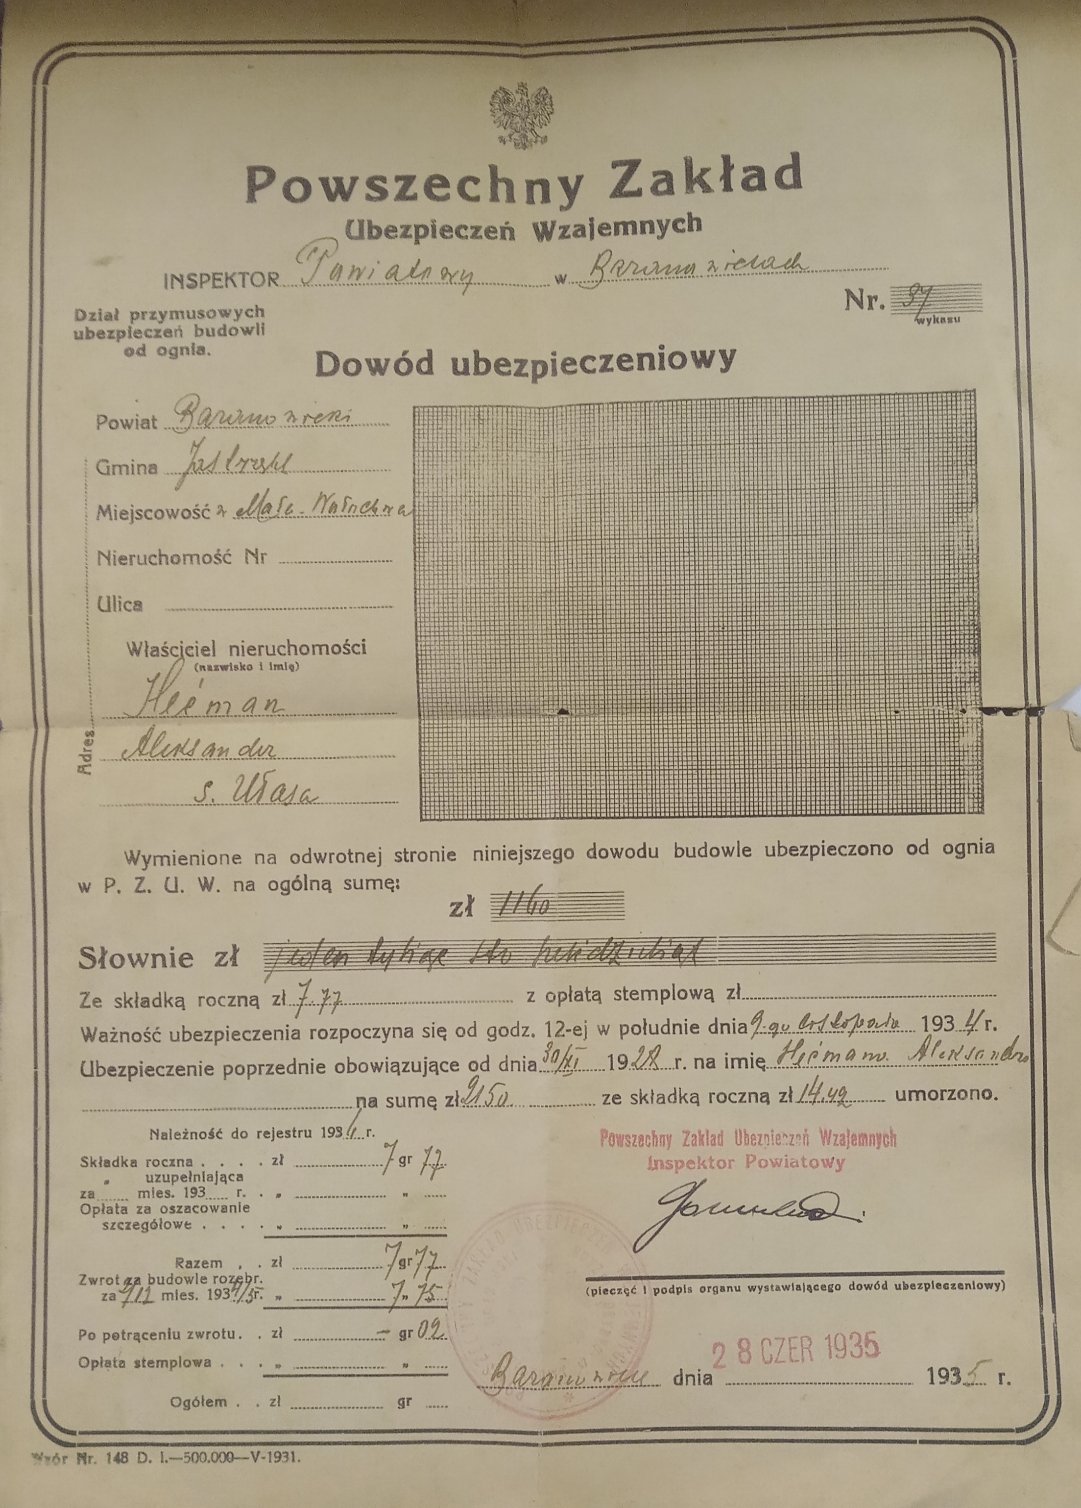 Powszechny Zakład
Ubezpieczeń Wzajemnych
INSPEKTOR Powiatowy w Baranowiczach
Nr. 37
wykazu
Dział przymusowych
ubezpieczeń budowli
od ognia.
Dowód ubezpieczeniowy
Powiat Baranowicki
Gmina
Miejscowość w Mała-
Nieruchomość Nr
Ulica
Właściciel nieruchomości
(nazwisko i imię)
Hećman
Aleksander
s. Ułasa
Adres
Wymienione na odwrotnej stronie niniejszego dowodu budowle ubezpieczono od ognia
w P. Z. U. W. na ogólną sumę:
zł 1160
Słownie zł jeden tysiąc sto
Ze składką roczną zł 7.77 z opłatą stemplową zł
Ważność ubezpieczenia rozpoczyna się od godz. 12-ej w południe dnia 9-go listopada 1934 r.
Ubezpieczenie poprzednie obowiązujące od dnia 30/XI 1928 r. na imię Hećmana Aleksandra
na sumę zł 2150 ze składką roczną zł 14.42 umorzono.
Należność do rejestru 1934 r.
Składka roczna . . . . zł 7 gr 77
" uzupełniająca
za mies. 193 r. . " "
Opłata za oszacowanie
szczegółowe . . . . " "
Razem . . zł 7 gr 77
Zwrot za budowle rozebr.
za mies. 1934/5 r. " 7 " 75
Po potrąceniu zwrotu . . zł — gr 02
Opłata stemplowa . . . " "
Ogółem . . zł gr
Powszechny Zakład Ubezpieczeń Wzajemnych
Inspektor Powiatowy
(pieczęć i podpis organu wystawiającego dowód ubezpieczeniowy)
Baranowicze dnia 28 CZER 1935 1935 r.
Wzór Nr. 148 D. I.—500.000—V-1931.